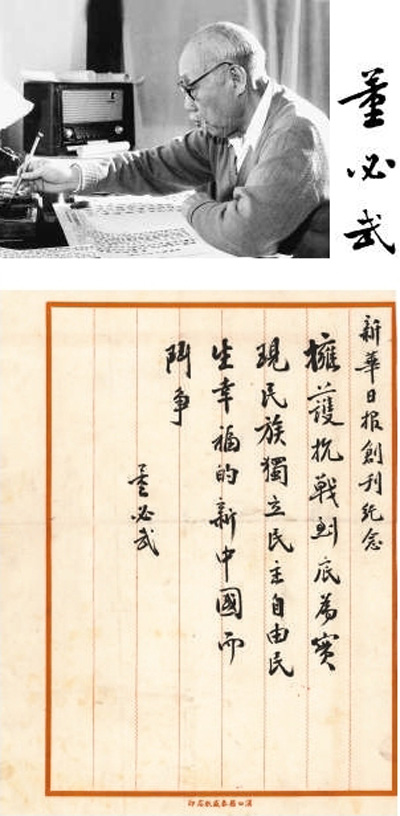 董必武
新華日报創刊紀念
擁護抗戰到底為實
現民族獨立民主自由民
生幸福的新中國而
鬥争
董必武